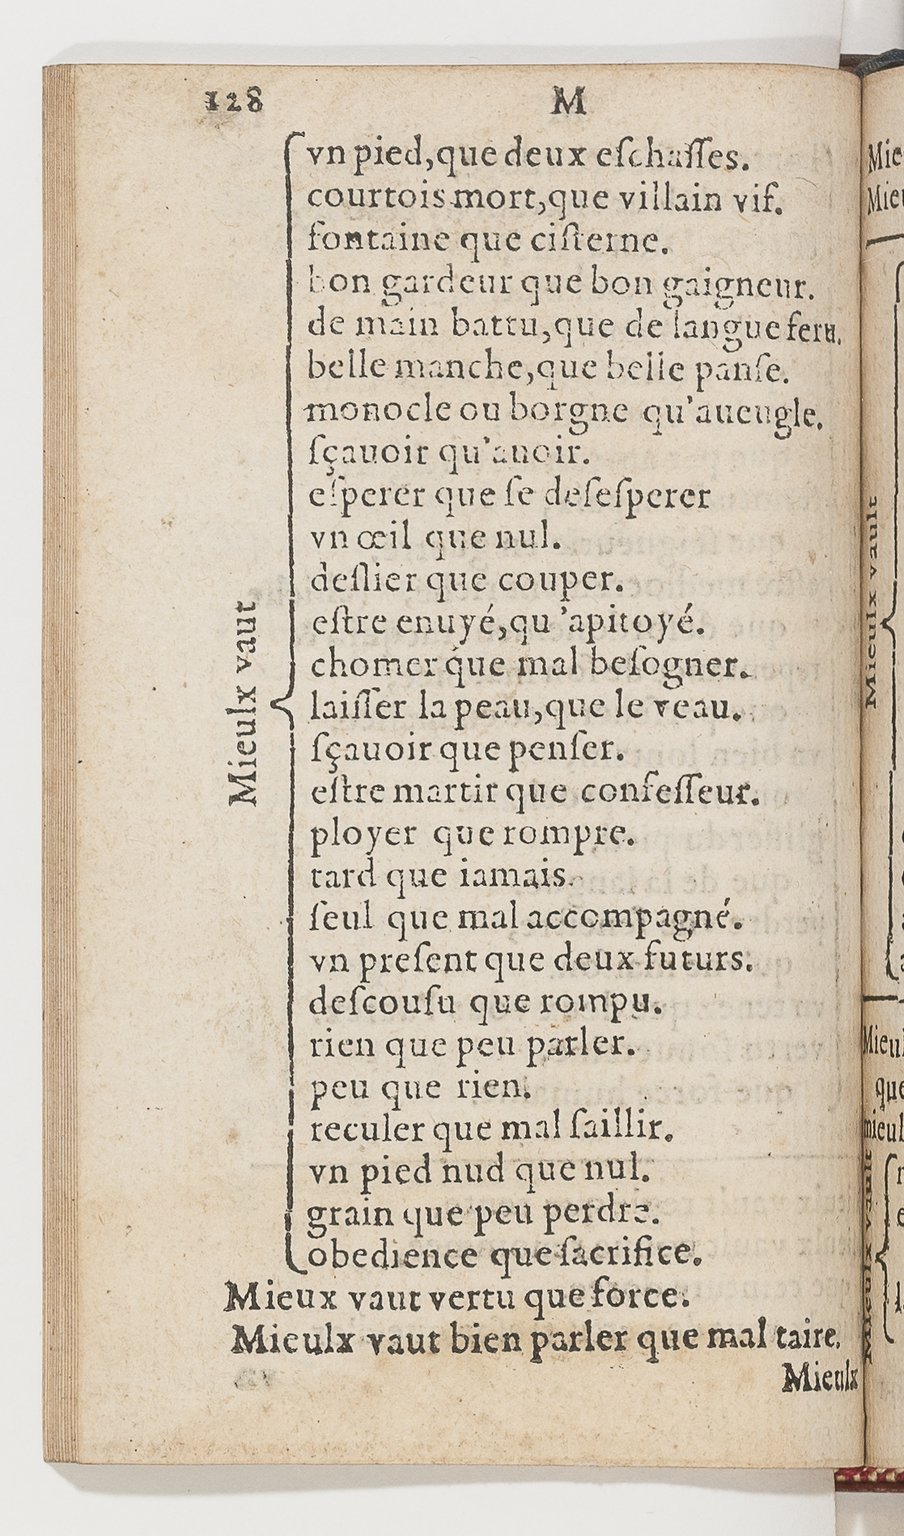 128 M
vn pied,que deux eſchaſſes.
courtois mort,que villain vif.
fontaine que ciſterne.
bon gardeur que bon gaigneur.
de main battu,que de langue feru.
belle manche,que belle panſe.
monocle ou borgne qu'aueugle.
ſçauoir qu'auoir.
eſperer que ſe deſeſperer
vn œil que nul.
deſlier que couper.
eſtre enuyé,qu'apitoyé.
chomer que mal beſogner.
Mieulx vaut
laiſſer la peau,que le veau.
ſçauoir que penſer.
eſtre martir que confeſſeur.
ployer que rompre.
tard que iamais.
ſeul que mal accompagné.
vn preſent que deux futurs.
deſcouſu que rompu.
rien que peu parler.
peu que rien.
reculer que mal ſaillir.
vn pied nud que nul.
grain que peu perdre.
obedience que ſacrifice.
Mieux vaut vertu que force.
Mieulx vaut bien parler que mal taire.
Mieulx
Mieulx vault